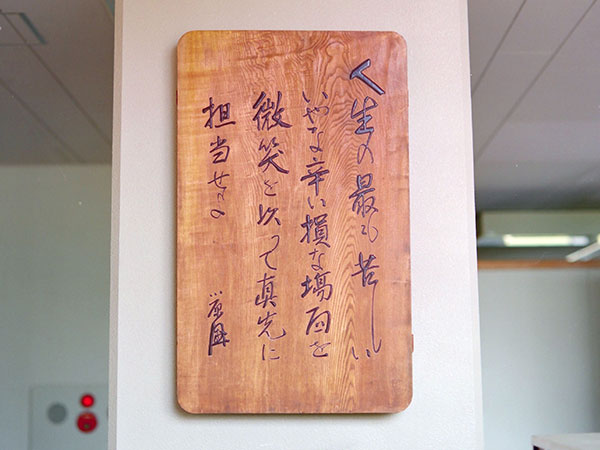 人生の最も苦しい
いやな辛い損な塲面を
微笑を以って真先に
担当せよ
小原